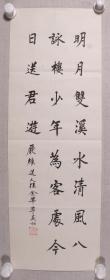 明月雙溪水清風八
詠樓少年為客處今
日送君遊
嚴維送人往金華